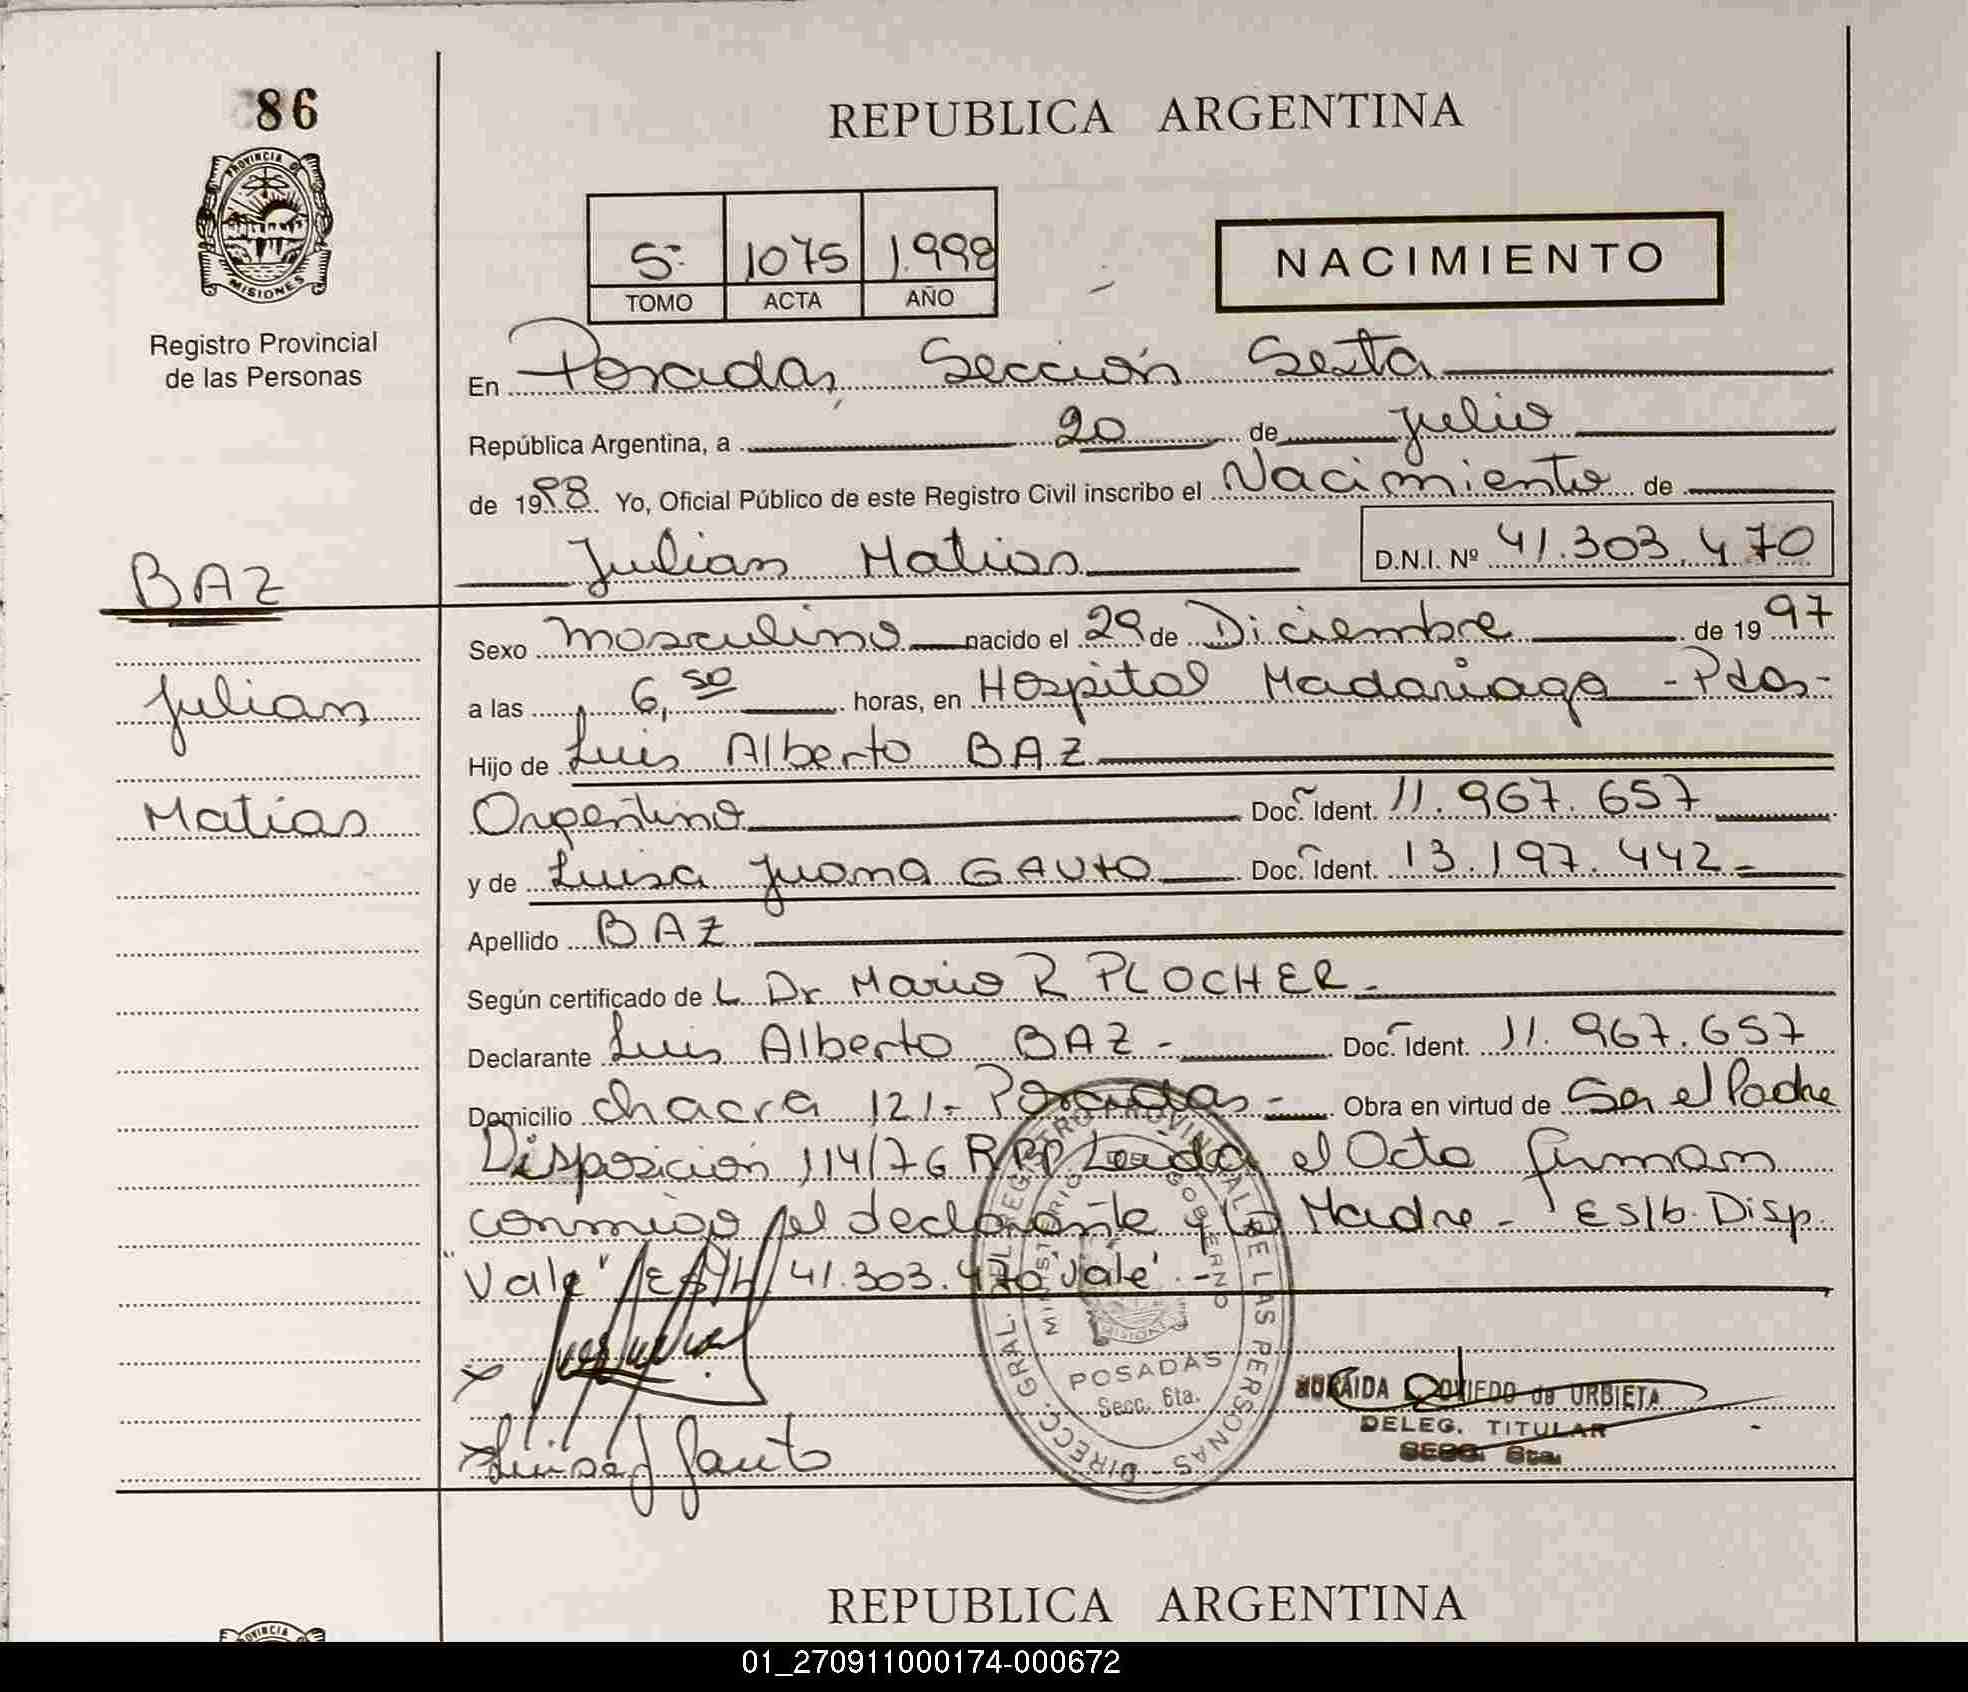 86
REPUBLICA ARGENTINA
PROVINCIA DE MISIONES
Registro Provincial
de las Personas
5º 1075 1.998
TOMO ACTA AÑO
NACIMIENTO
En Posadas, Sección Sexta
República Argentina, a 20 de Julio
de 1998 Yo, Oficial Público de este Registro Civil inscribo el Nacimiento de
Julian Matias D.N.I. Nº 41.303.470
BAZ
Julian
Matias
Sexo Masculino nacido el 29 de Diciembre de 1997
a las 6,50 horas, en Hospital Madariaga - Pdas -
Hijo de Luis Alberto BAZ
Argentino Doc. Ident. 11.967.657
y de Luisa Juana GAUTO Doc. Ident. 13.197.442 =
Apellido BAZ
Según certificado de L Dr Mario R PLOCHER -
Declarante Luis Alberto BAZ - Doc. Ident. 11.967.657
Domicilio chacra 121 - Posadas - Obra en virtud de Ser el Padre
Disposición 114/76 RPP Leida el Acta firman
conmigo el declarante y la Madre - Es/b. Disp.
"Vale" 41.303.470 "Vale" . -
DIRECC. GRAL. DEL REGISTRO PROVINCIAL DE LAS PERSONAS
MINISTERIO GOBIERNO
MISIONES
POSADAS
Secc. 6ta.
Luisa J Gauto
OVIEDO de URBIETA
DELEG. TITULAR
SECC. 6ta.
REPUBLICA ARGENTINA
PROVINCIA
01_270911000174-000672